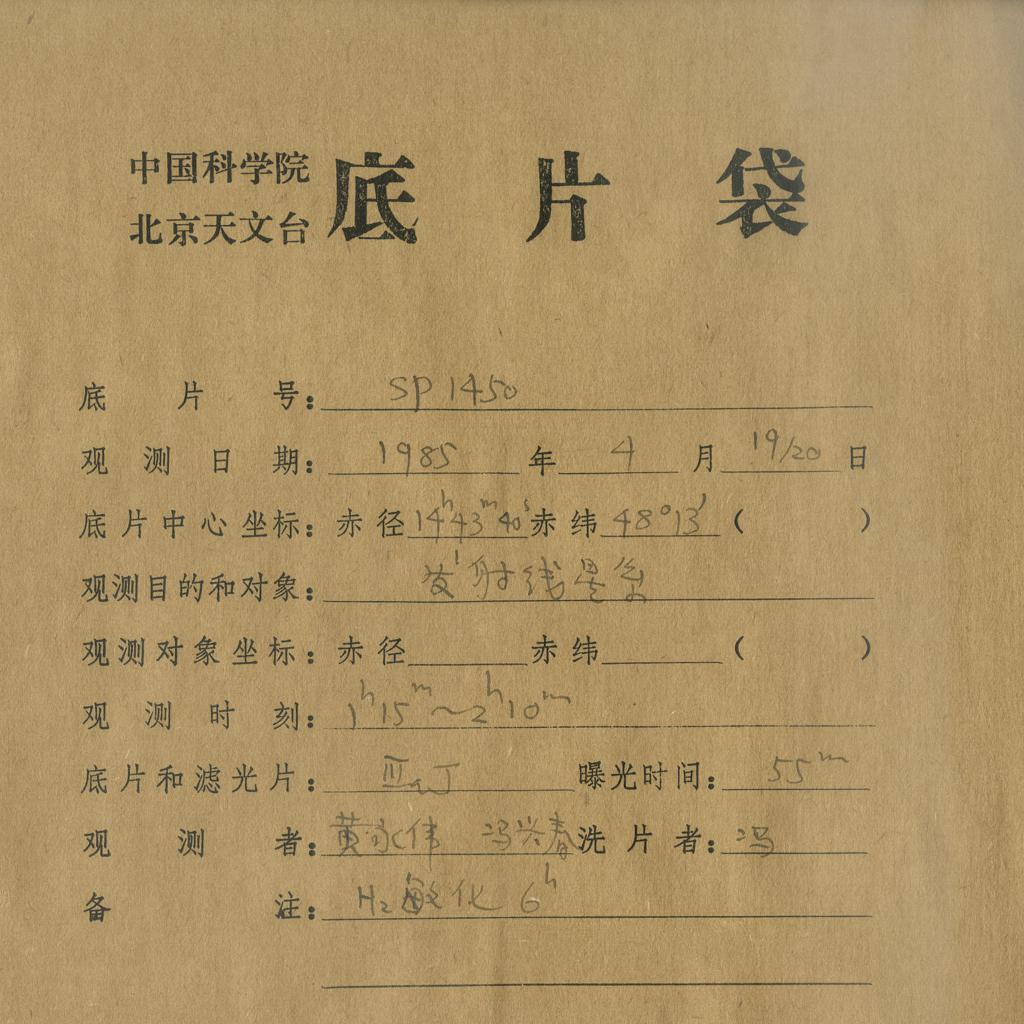 中国科学院
北京天文台 底片袋
底片号： SP 1450
观测日期： 1985 年 4 月 19/20 日
底片中心坐标：赤径 14h43m40s 赤纬 48°13′ （ ）
观测目的和对象： 发射线星系
观测对象坐标：赤径 赤纬 （ ）
观测时刻： 1h15m～2h10m
底片和滤光片： ⅢaJ 曝光时间： 55m
观测者： 黄永伟 冯兴春 洗片者： 冯
备注： H₂敏化 6h